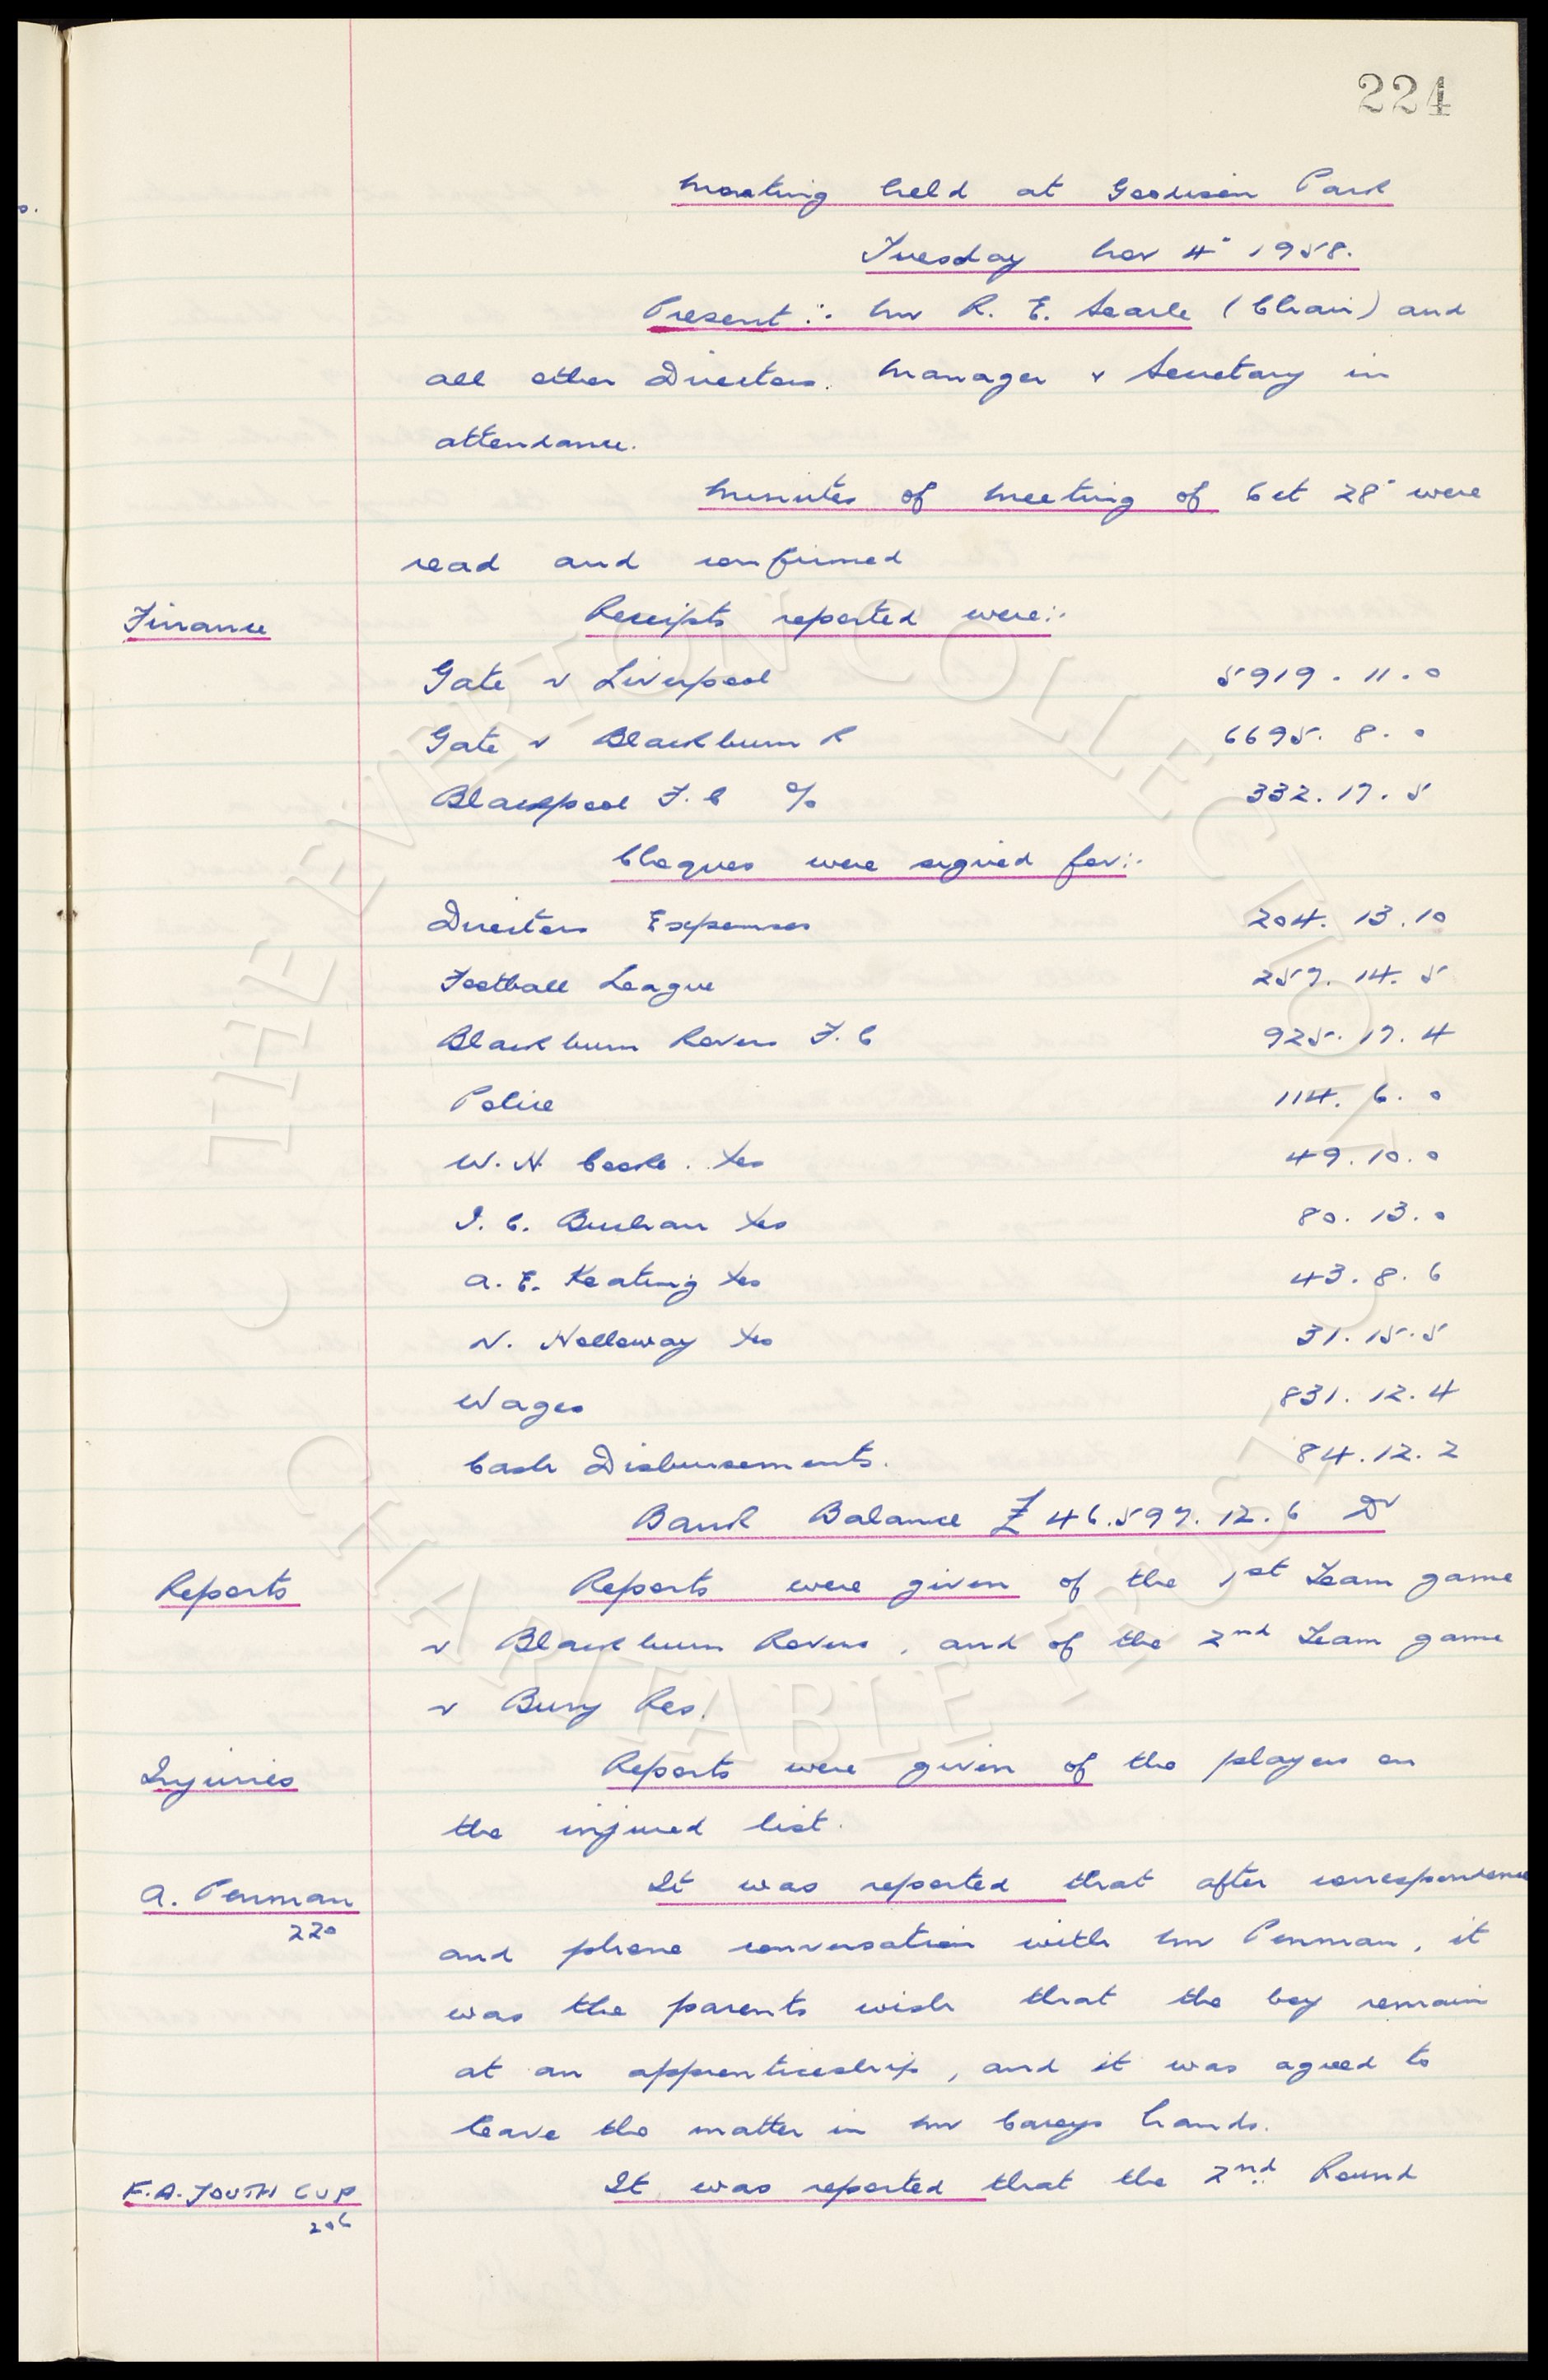 224
Meeting held at Goodison Park
Tuesday Nov 4" 1958.
Present :- Mr R. E. Searle (Chair) and
all other Directors. Manager & Secretary in
attendance.
Minutes of meeting of Oct 28" were
read and confirmed
Finance
Receipts reported were:-
Gate v Liverpool 5919. 11. 0
Gate v Blackburn R 6695. 8. 0
Blackpool F.C % 332. 17. 5
Cheques were signed for:-
Directors Expenses 204. 13. 10
Football League 257. 14. 5
Blackburn Rovers F.C 925. 17. 4
Police 114. 6. 0
W. H. Cooke. Exs 49. 10. 0
I. C. Buchan Exs 80. 13. 0
A. E. Keating Exs 43. 8. 6
N. Holloway Exs 31. 15. 5
Wages 831. 12. 4
Cash Disbursements. 84. 12. 2
Bank Balance £46.597. 12. 6 Dr
Reports
Reports were given of the 1st Team game
v Blackburn Rovers, and of the 2nd Team game
v Bury Res.
Injuries
Reports were given of the players on
the injured list.
A. Penman
220
It was reported that after correspondence
and phone conversation with Mr Penman, it
was the parents wish that the boy remain
at an apprenticeship, and it was agreed to
leave the matter in Mr Careys hands.
F.A. YOUTH CUP
206
It was reported that the 2nd Round
THE EVERTON COLLECTION
CHARITABLE TRUST